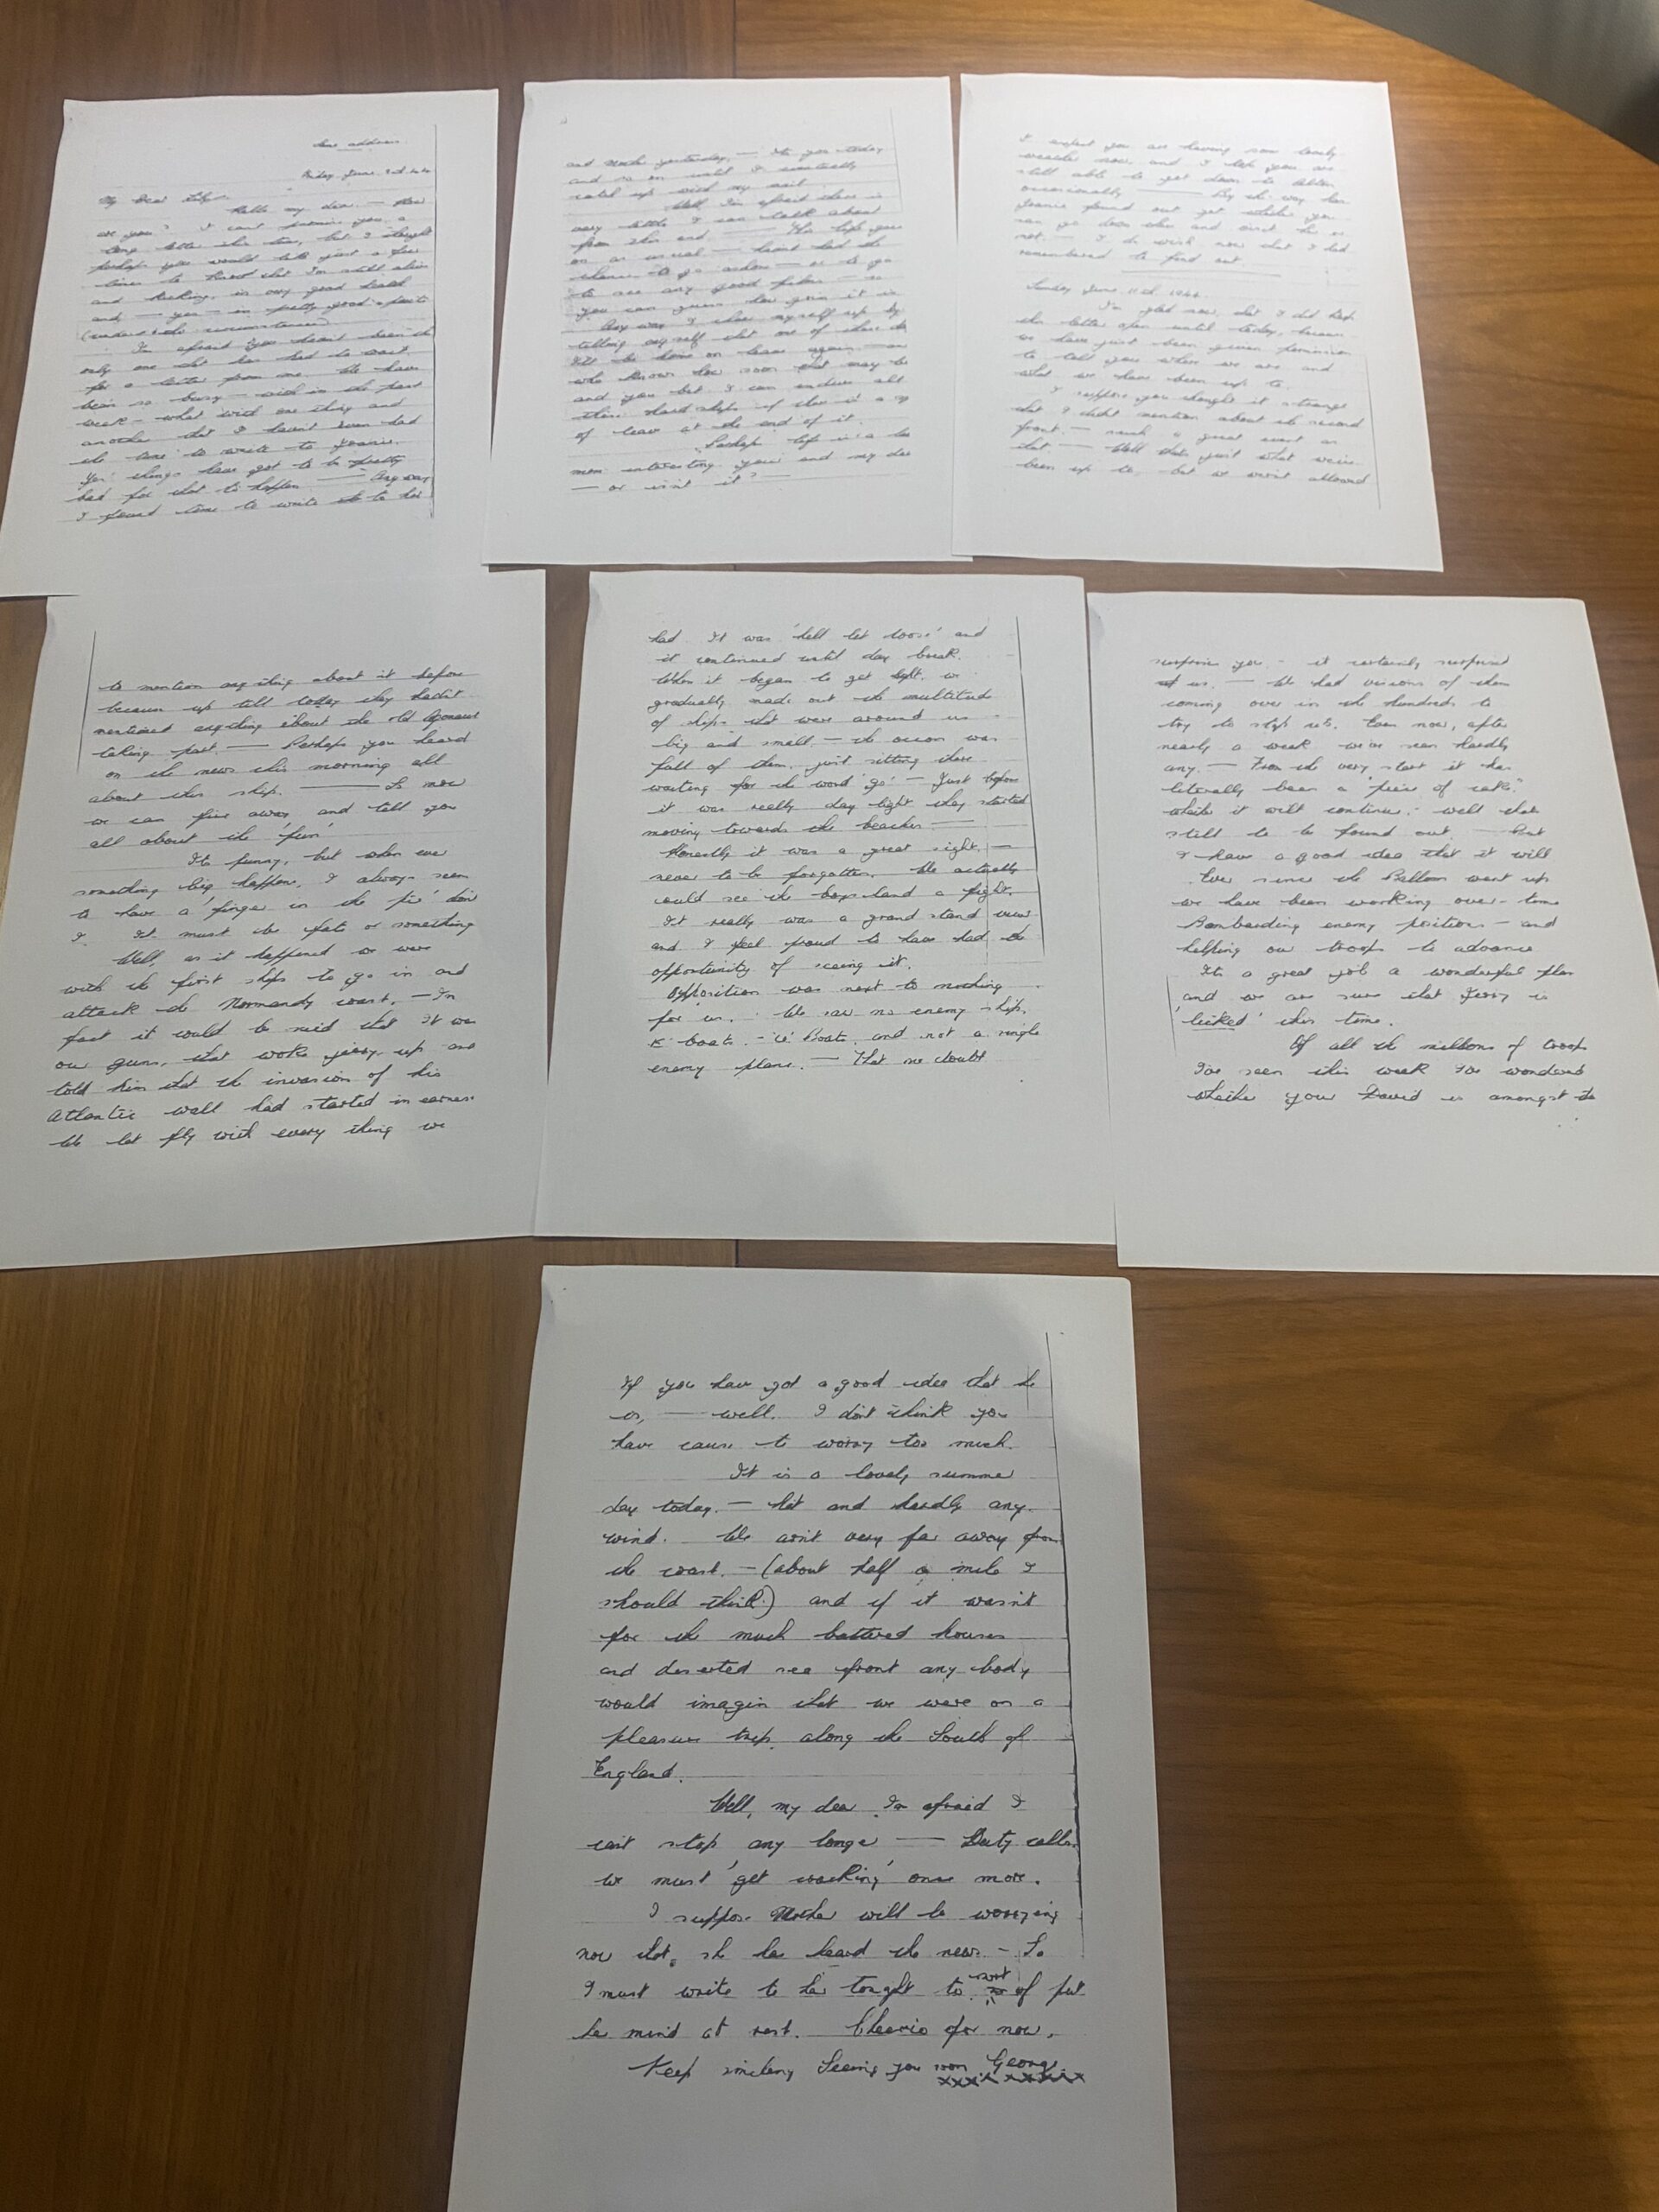 Same address
Friday June 9th 44
My Dear Lily
Hello my dear. — How
are you? I can't promise you a
long letter this time, but I thought
perhaps you would like just a few
lines to know that I'm still alive
and kicking, in very good health
and, — yes — in pretty good spirits
(under the circumstances)
I'm afraid you haven't been the
only one that has had to wait
for a letter from me. We have
been so busy — in the past
week — what with one thing and
another that I haven't even had
the time to write to Jeanie.
Yes things have got to be pretty
bad for that to happen — Any way
I found time to write to her
and Mother yesterday, — To you today
and so on until I eventually
catch up with my mail.
Well I'm afraid there is
very little I can talk about
from this end. — The life goes
on as usual — haven't had the
chance to go ashore — or to go
to see any good films — so
you can guess how grim it is
Any way I cheer myself up by
telling myself that one of these days
I'll be home on leave again — and
who knows how soon that may be
and you bet I can endure all
these hardships if there is a spot
of leave at the end of it.
Perhaps life is a bit
more interesting your end my dear
— or isn't it? —
I expect you are having some lovely
weather now, and I hope you are
still able to get down to
occasionally — By the way has
Jeanie found out yet whether you
can go down there and visit her or
not. — I do wish now that I had
remembered to find out.
Sunday June 11th. 1944.
I'm glad now, that I did keep
this letter open until today, because
we have just been given permission
to tell you where we are and
what we have been up to.
I suppose you thought it strange
that I didn't mention about the second
front. — such a great event as
that — Well that's just what we've
been up to, but we weren't allowed
to mention anything about it before
because up till today they hadn't
mentioned anything about the old Agonaut
taking part. — Perhaps you heard
on the news this morning all
about this ship. — So now
we can fire away and tell you
all about the 'fun'
Its funny, but when ever
something big happens, I always seem
to have a 'finger in the pie' don't
I. It must be fate or something
Well, as it happened we were
with the first ships to go in and
attack the Normandy coast. — In
fact it could be said that it was
our guns, that woke jerry up and
told him that the invasion of his
Atlantic wall had started in earnest
We let fly with every thing we
had. It was 'hell let loose' and
it continued until day break.
When it began to get light, we
gradually made out the multitude
of ships that were around us —
big and small — the ocean was
full of them, just sitting there
waiting for the word 'go' — Just before
it was really day light they started
moving towards the beaches —
Honestly it was a great sight, —
never to be forgotten. We actually
could see the boys land & fight.
It really was a grand stand view
and I feel proud to have had the
opportunity of seeing it.
Opposition was next to nothing
for us. We saw no enemy ships,
E boats, - 'U' Boats, and not a single
enemy plane. — That no doubt
surprises you — it certainly surprised
us. — We had visions of them
coming over in the hundreds to
try to stop us. Even now, after
nearly a week we've seen hardly
any. — From the very start it has
literally been a "piece of cake."
whether it will continue: well that
still to be found out. — But
I have a good idea that it will
Ever since the Balloon went up
we have been working over-time
Bombarding enemy positions — and
helping our troops to advance
Its a great job a wonderful plan
and we are sure that Jerry is
'licked' this time.
Of all the millions of troops
I've seen this week I've wondered
whether your David is amongst them
If you have got a good idea that he
is, — well. I don't think you
have cause to worry too much.
It is a lovely summer
day today. — hot and hardly any
wind. We aint very far away from
the coast. — (about half a mile I
should think) and if it wasn't
for the much battered houses
and deserted sea front any body
would imagin that we were on a
pleasure trip, along the South of
England.
Well, my dear I'm afraid I
cant stop any longer — Duty calls
we must 'get cracking' once more.
I suppose Mother will be worrying
now that she has heard the news — So
I must write to her tonght to sort of put
her mind at rest. Cheerio for now.
Keep smiling Seeing you soon George
xxxx xxxxx